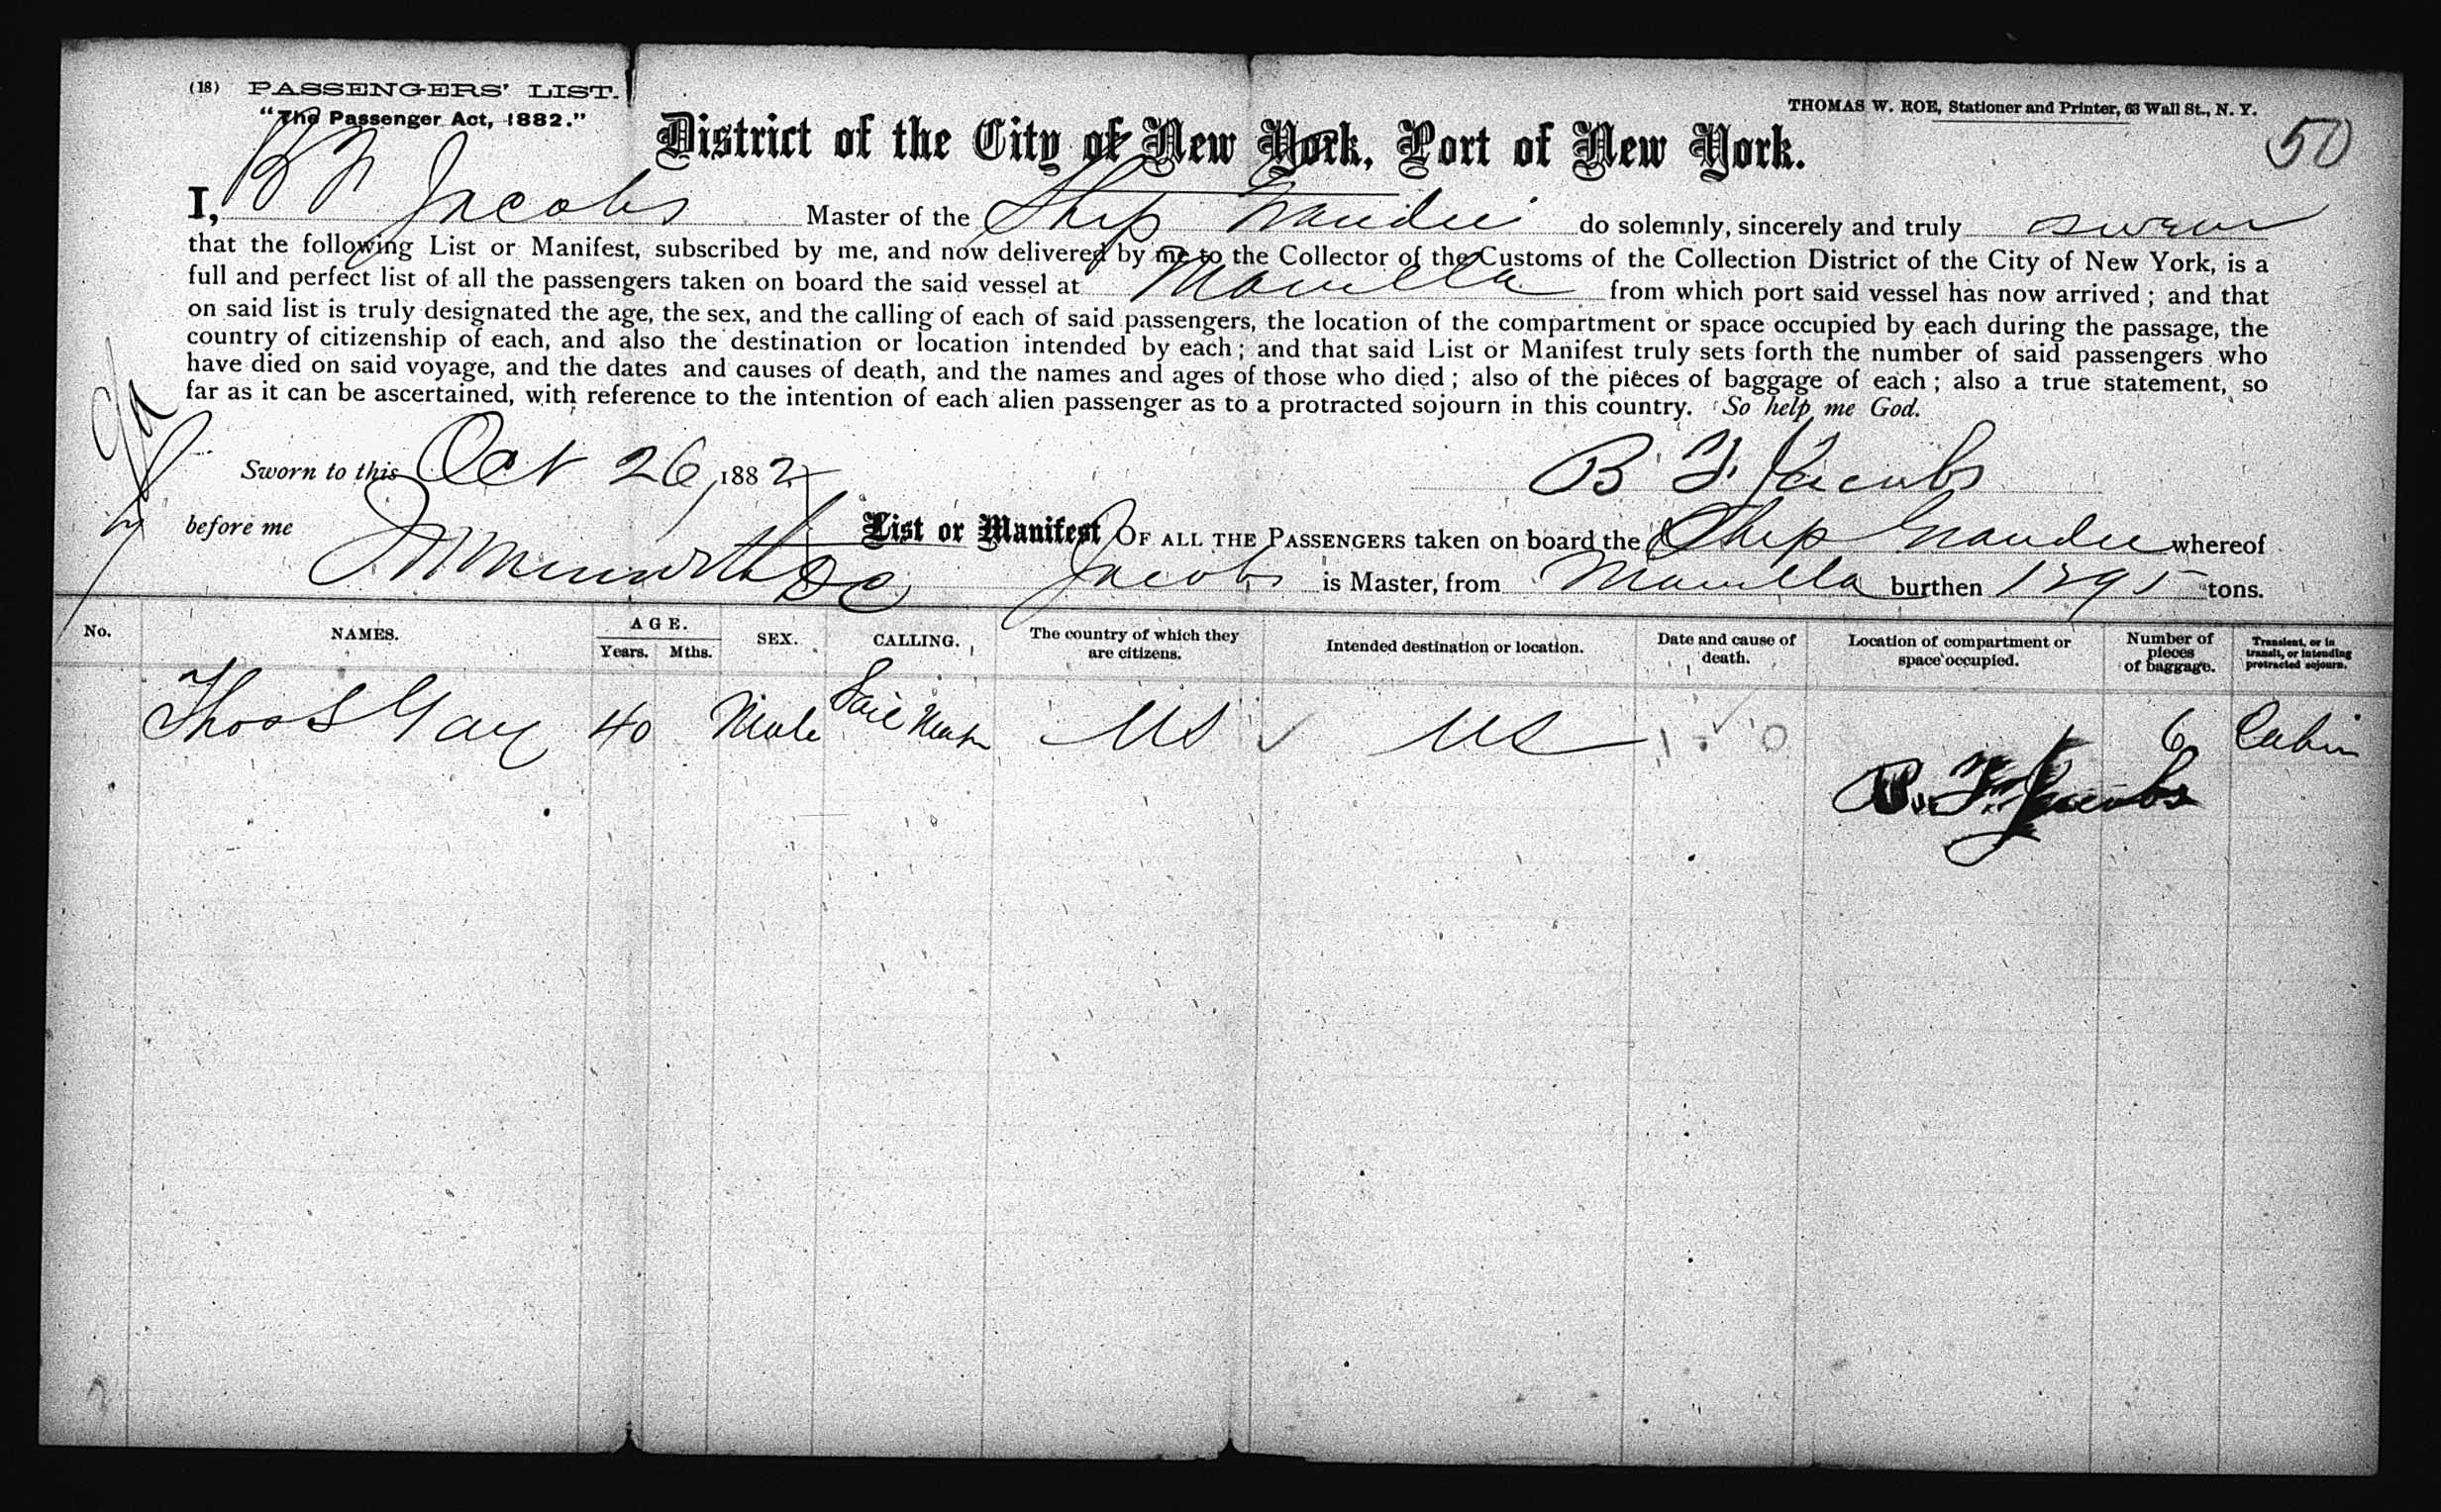 (18) PASSENGERS' LIST.
THOMAS W. ROE, Stationer and Printer, 63 Wall St., N. Y.
"The Passenger Act, 1882."
District of the City of New York, Port of New York.
50
I, B F Jacobs Master of the Ship Grandee do solemnly, sincerely and truly swear
that the following List or Manifest, subscribed by me, and now delivered by me to the Collector of the Customs of the Collection District of the City of New York, is a
full and perfect list of all the passengers taken on board the said vessel at Manilla from which port said vessel has now arrived; and that
on said list is truly designated the age, the sex, and the calling of each of said passengers, the location of the compartment or space occupied by each during the passage, the
country of citizenship of each, and also the destination or location intended by each; and that said List or Manifest truly sets forth the number of said passengers who
have died on said voyage, and the dates and causes of death, and the names and ages of those who died; also of the pieces of baggage of each; also a true statement, so
far as it can be ascertained, with reference to the intention of each alien passenger as to a protracted sojourn in this country. So help me God.
Sworn to this Oct 26, 1882
B. F. Jacobs
before me
List or Manifest OF ALL THE PASSENGERS taken on board the Ship Grandee whereof
DC Jacobs is Master, from Manilla burthen 1295 tons.
No. NAMES. AGE. Years. Mths. SEX. CALLING. The country of which they are citizens. Intended destination or location. Date and cause of death. Location of compartment or space occupied. Number of pieces of baggage. Transient, or in transit, or intending protracted sojourn.
Thos S Gay 40 Male Sail Maker US US 6 Cabin
B. F. Jacobs